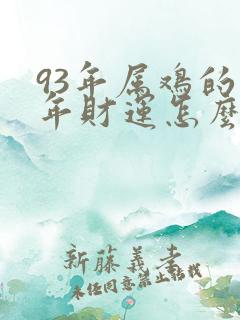 93年属鸡的
年财运怎麼
新藤義孝
未经同意禁止转载